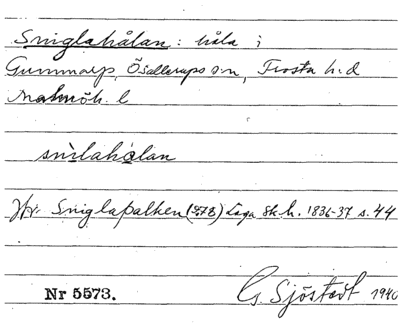 Sniglahålan: håla i
Gummarp, Ö. Sallerups s:n, Frosta h.d
Malmöh. l
snìlahålan
Jfr. Sniglapalken Laga sk. h. 1836-37 s. 44
Nr 5573.
G. Sjöstedt 1940